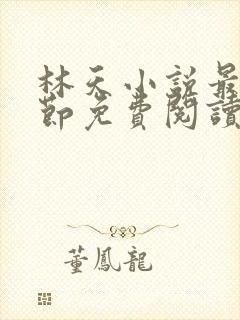 林天小説最
節免費閱讀
董鳳龍